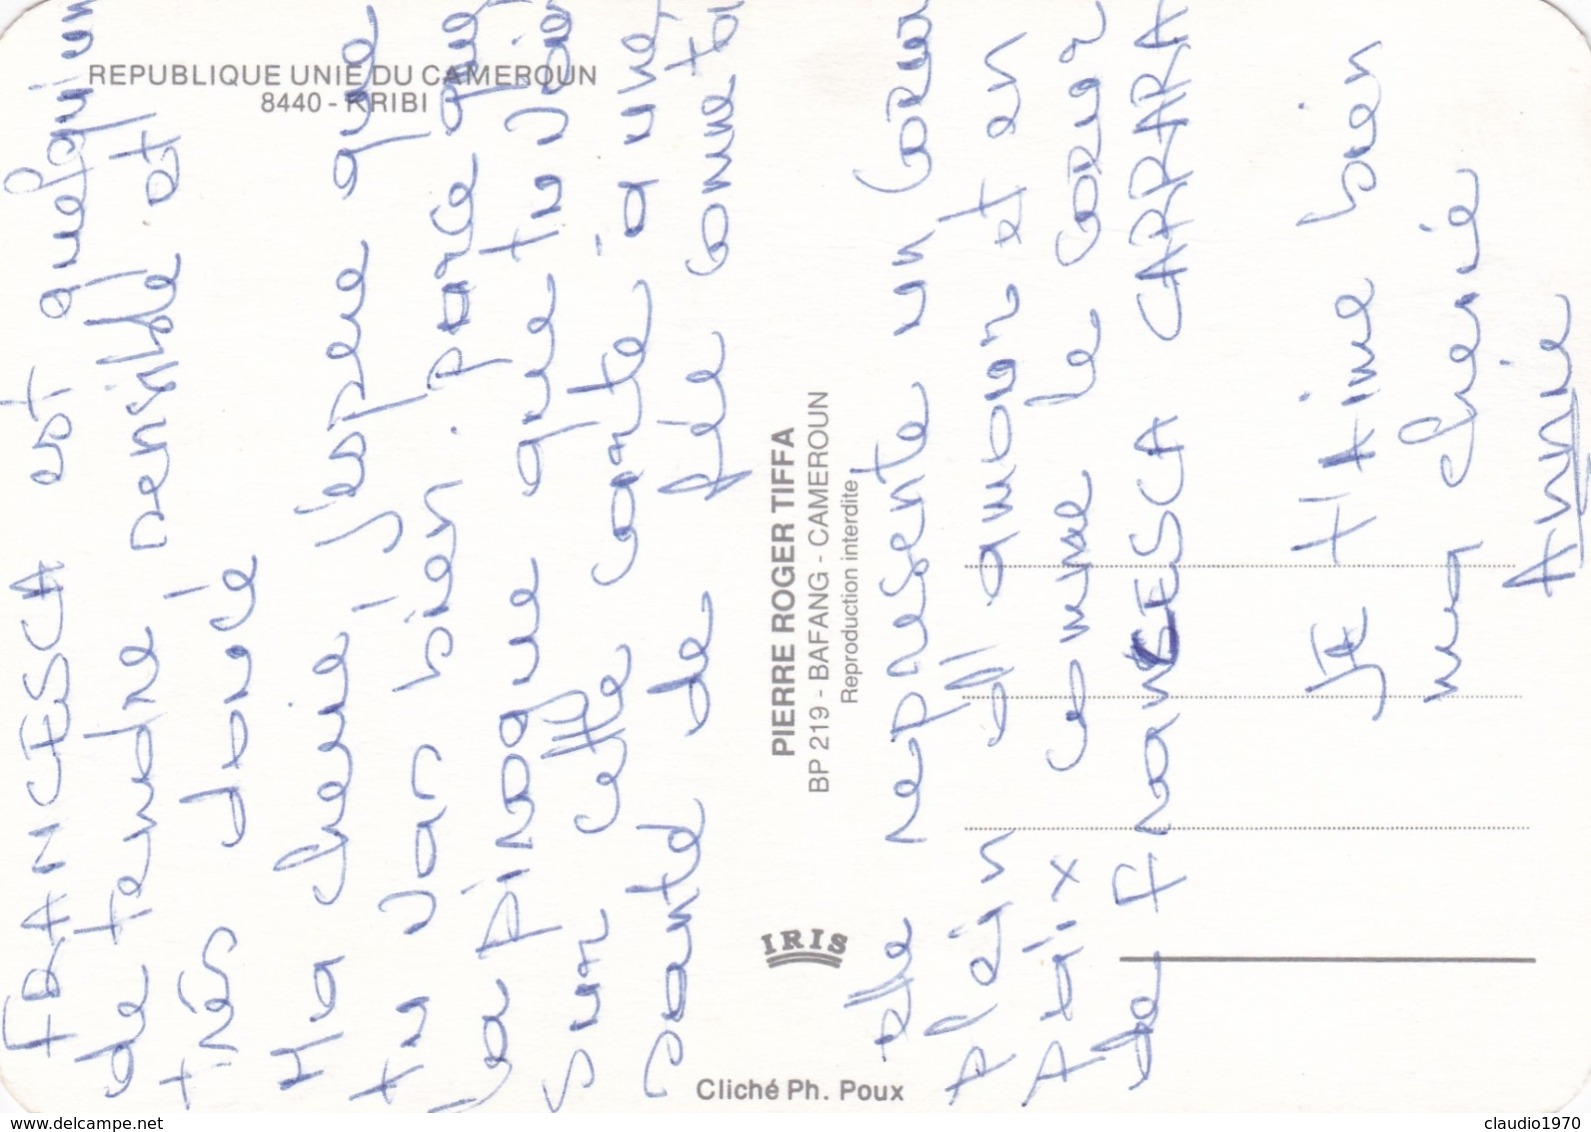 REPUBLIQUE UNIE DU CAMEROUN
8440 - KRIBI
FRANCESCA est quelqu'un
de tendre sensible et
très doué
Ma cherie j'espere que
tu vas bien. parce que
la pirogue que tu vois
sur cette carte a une
sante de fée comme toi
PIERRE ROGER TIFFA
BP 219 - BAFANG - CAMEROUN
Reproduction interdite
IRIS
Cliché Ph. Poux
elle represente un coeur
plein d'amour et en
comme le coeur
de FranCESCA CARRARA
JE t'Aime bien
ma cherie
Annie
www.delcampe.net
claudio1970